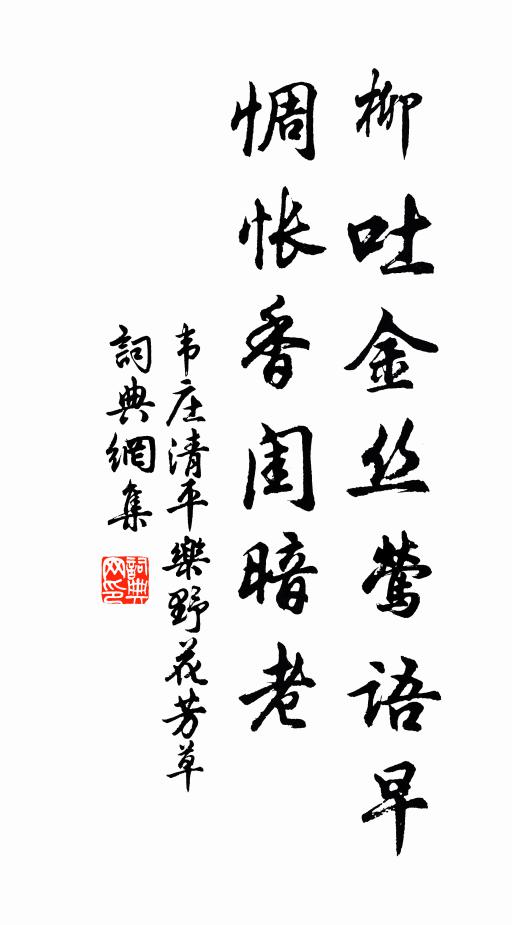 柳吐金丝鶯语早
惆怅香闺暗老
韦庄清平樂野花芳草
詞典網集
詞典网印